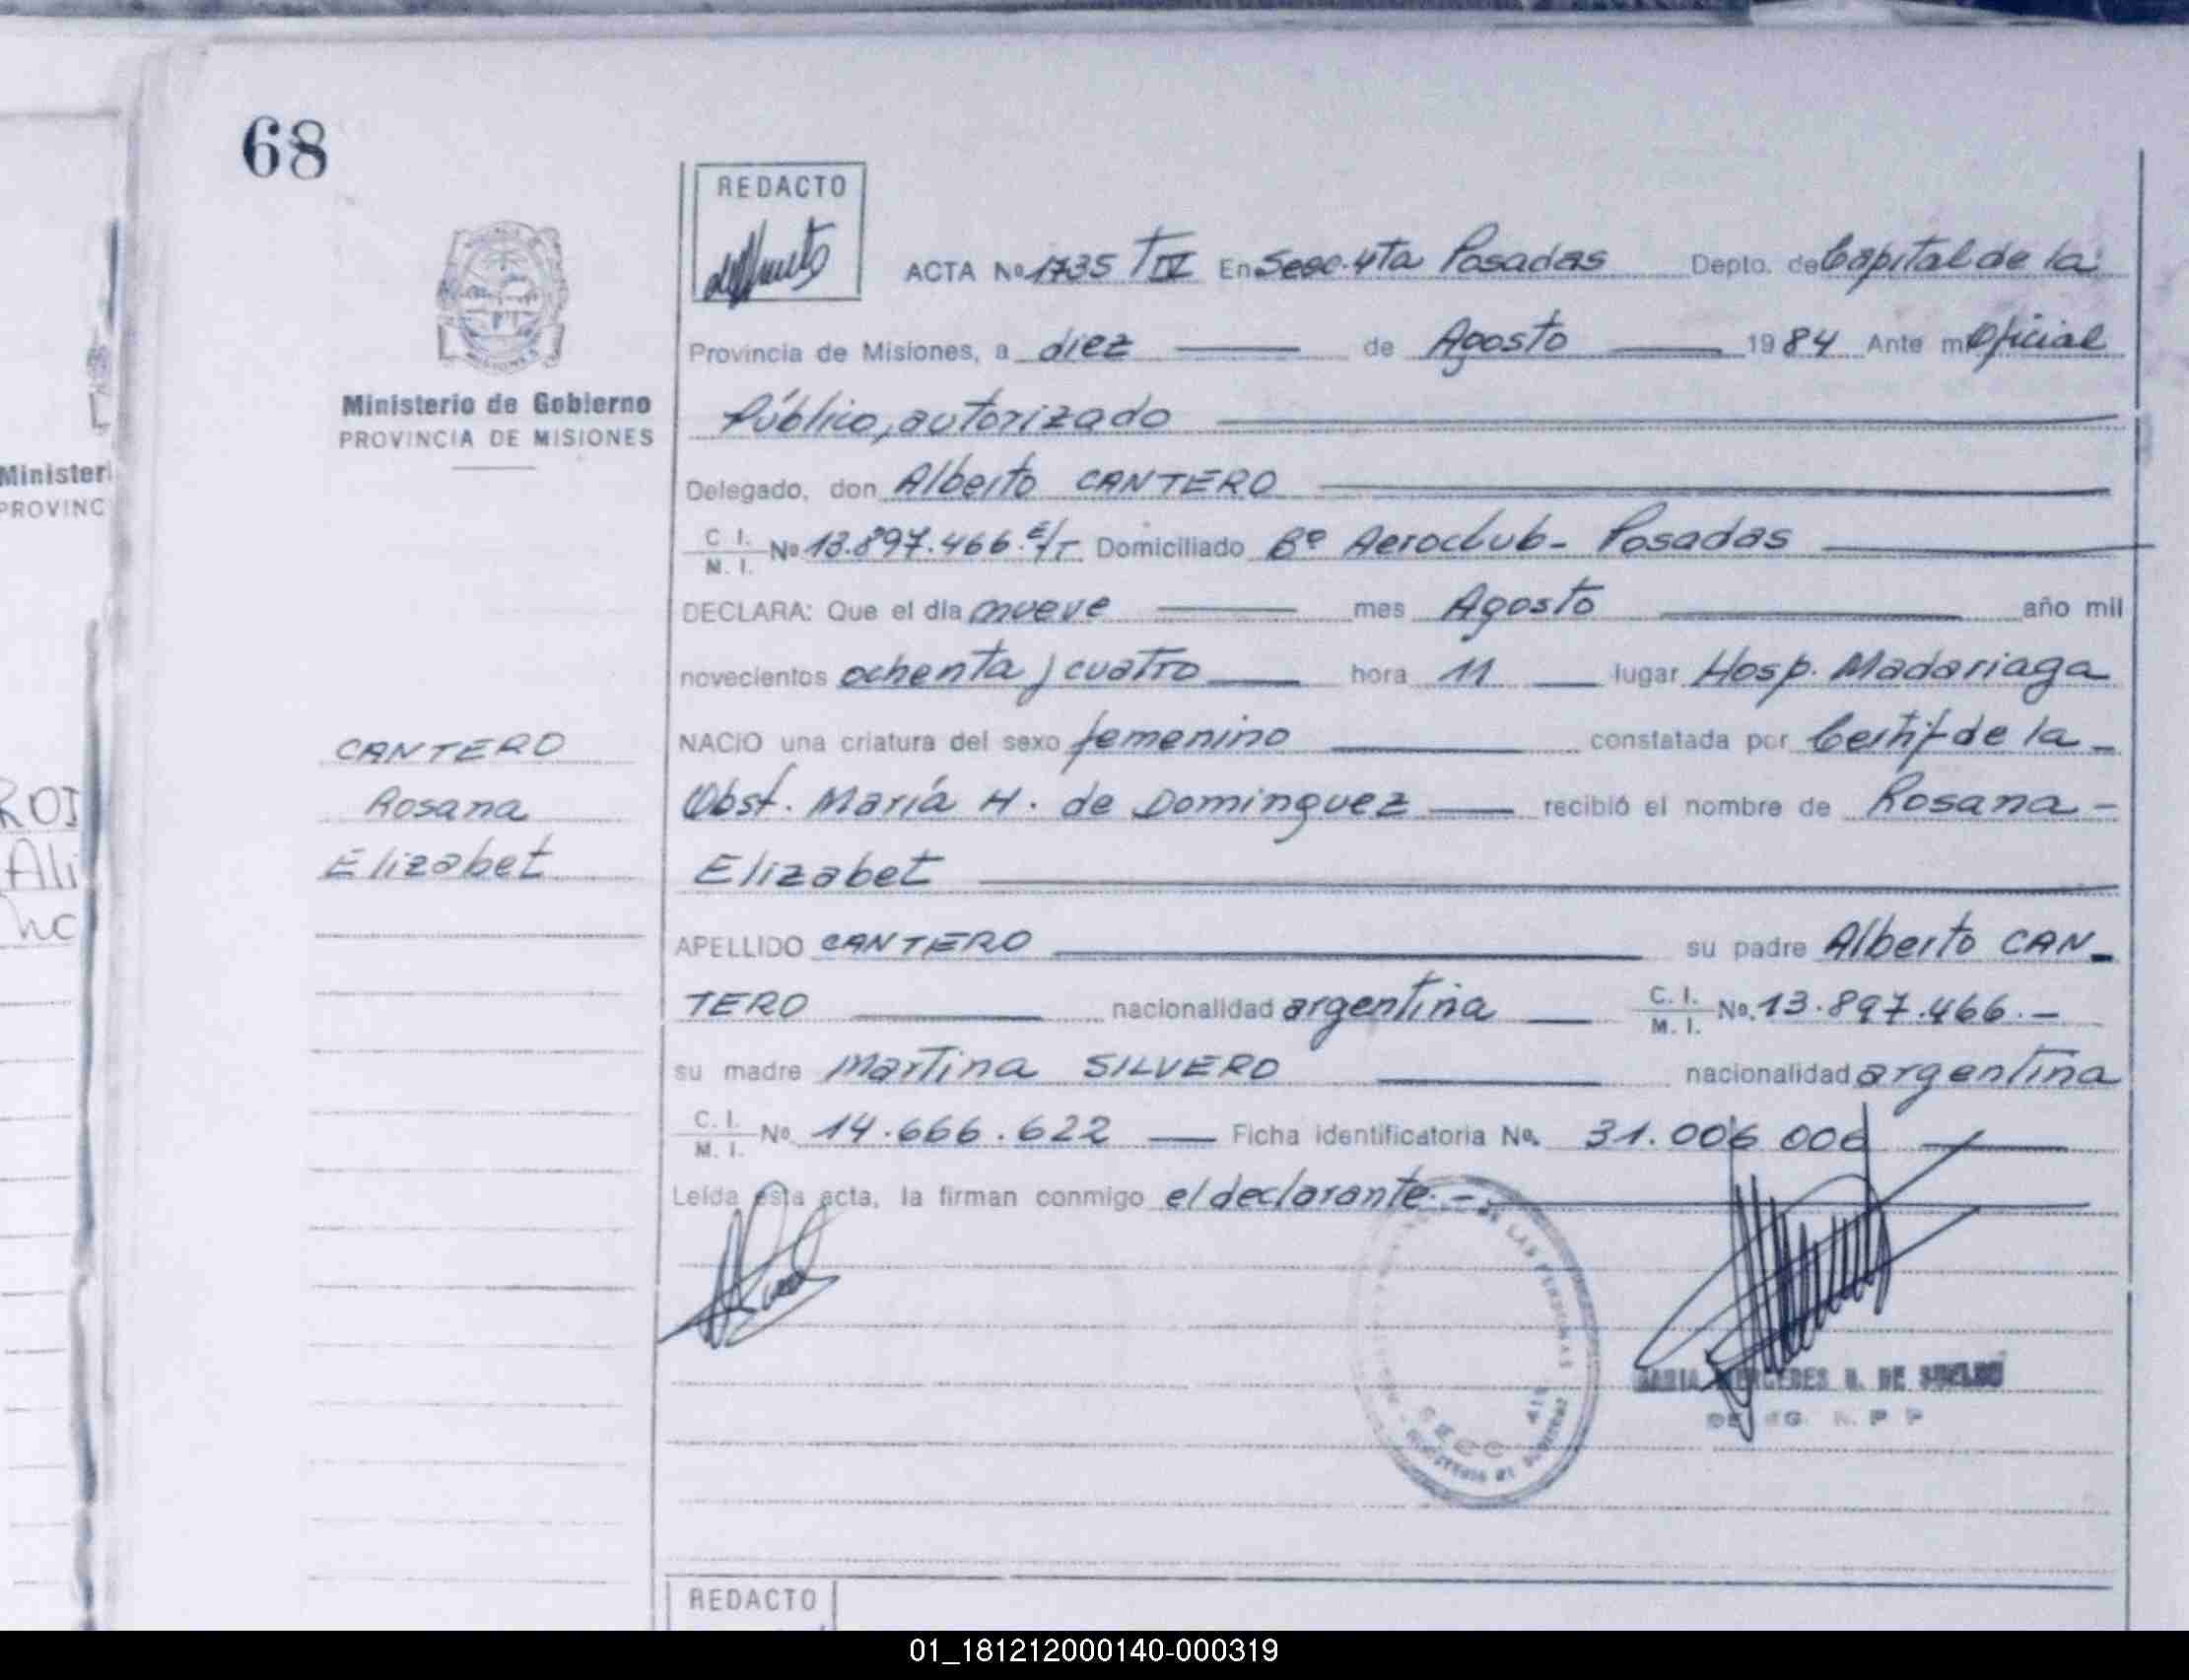 68
REDACTO
ACTA Nº 1735 T IV En Secc. 4ta Posadas Depto. de Capital de la
Provincia de Misiones, a diez de Agosto 1984 Ante mi Oficial
Ministerio de Gobierno
PROVINCIA DE MISIONES
Público, autorizado
Delegado, don Alberto CANTERO
C. I. M. I. Nº 13.897.466. E/T Domiciliado Bº Aeroclub - Posadas
DECLARA: Que el día nueve mes Agosto año mil
novecientos ochenta y cuatro hora 11 lugar Hosp. Madariaga
NACIO una criatura del sexo femenino constatada por Certif de la
Obst. María H. de Dominguez recibió el nombre de Rosana -
Elizabet
CANTERO
Rosana
Elizabet
APELLIDO CANTERO su padre Alberto CAN-
TERO nacionalidad argentina C. I. M. I. Nº 13.897.466.-
su madre Martina SILVERO nacionalidad argentina
C. I. M. I. Nº 14.666.622 Ficha identificatoria Nº 31.006 006
Leída esta acta, la firman conmigo el declarante.-
DE LAS PERSONAS
SECC 4ta
MARIA MERCEDES B. DE
REDACTO
Minister
PROVINC
ROJ
Ali
01_181212000140-000319